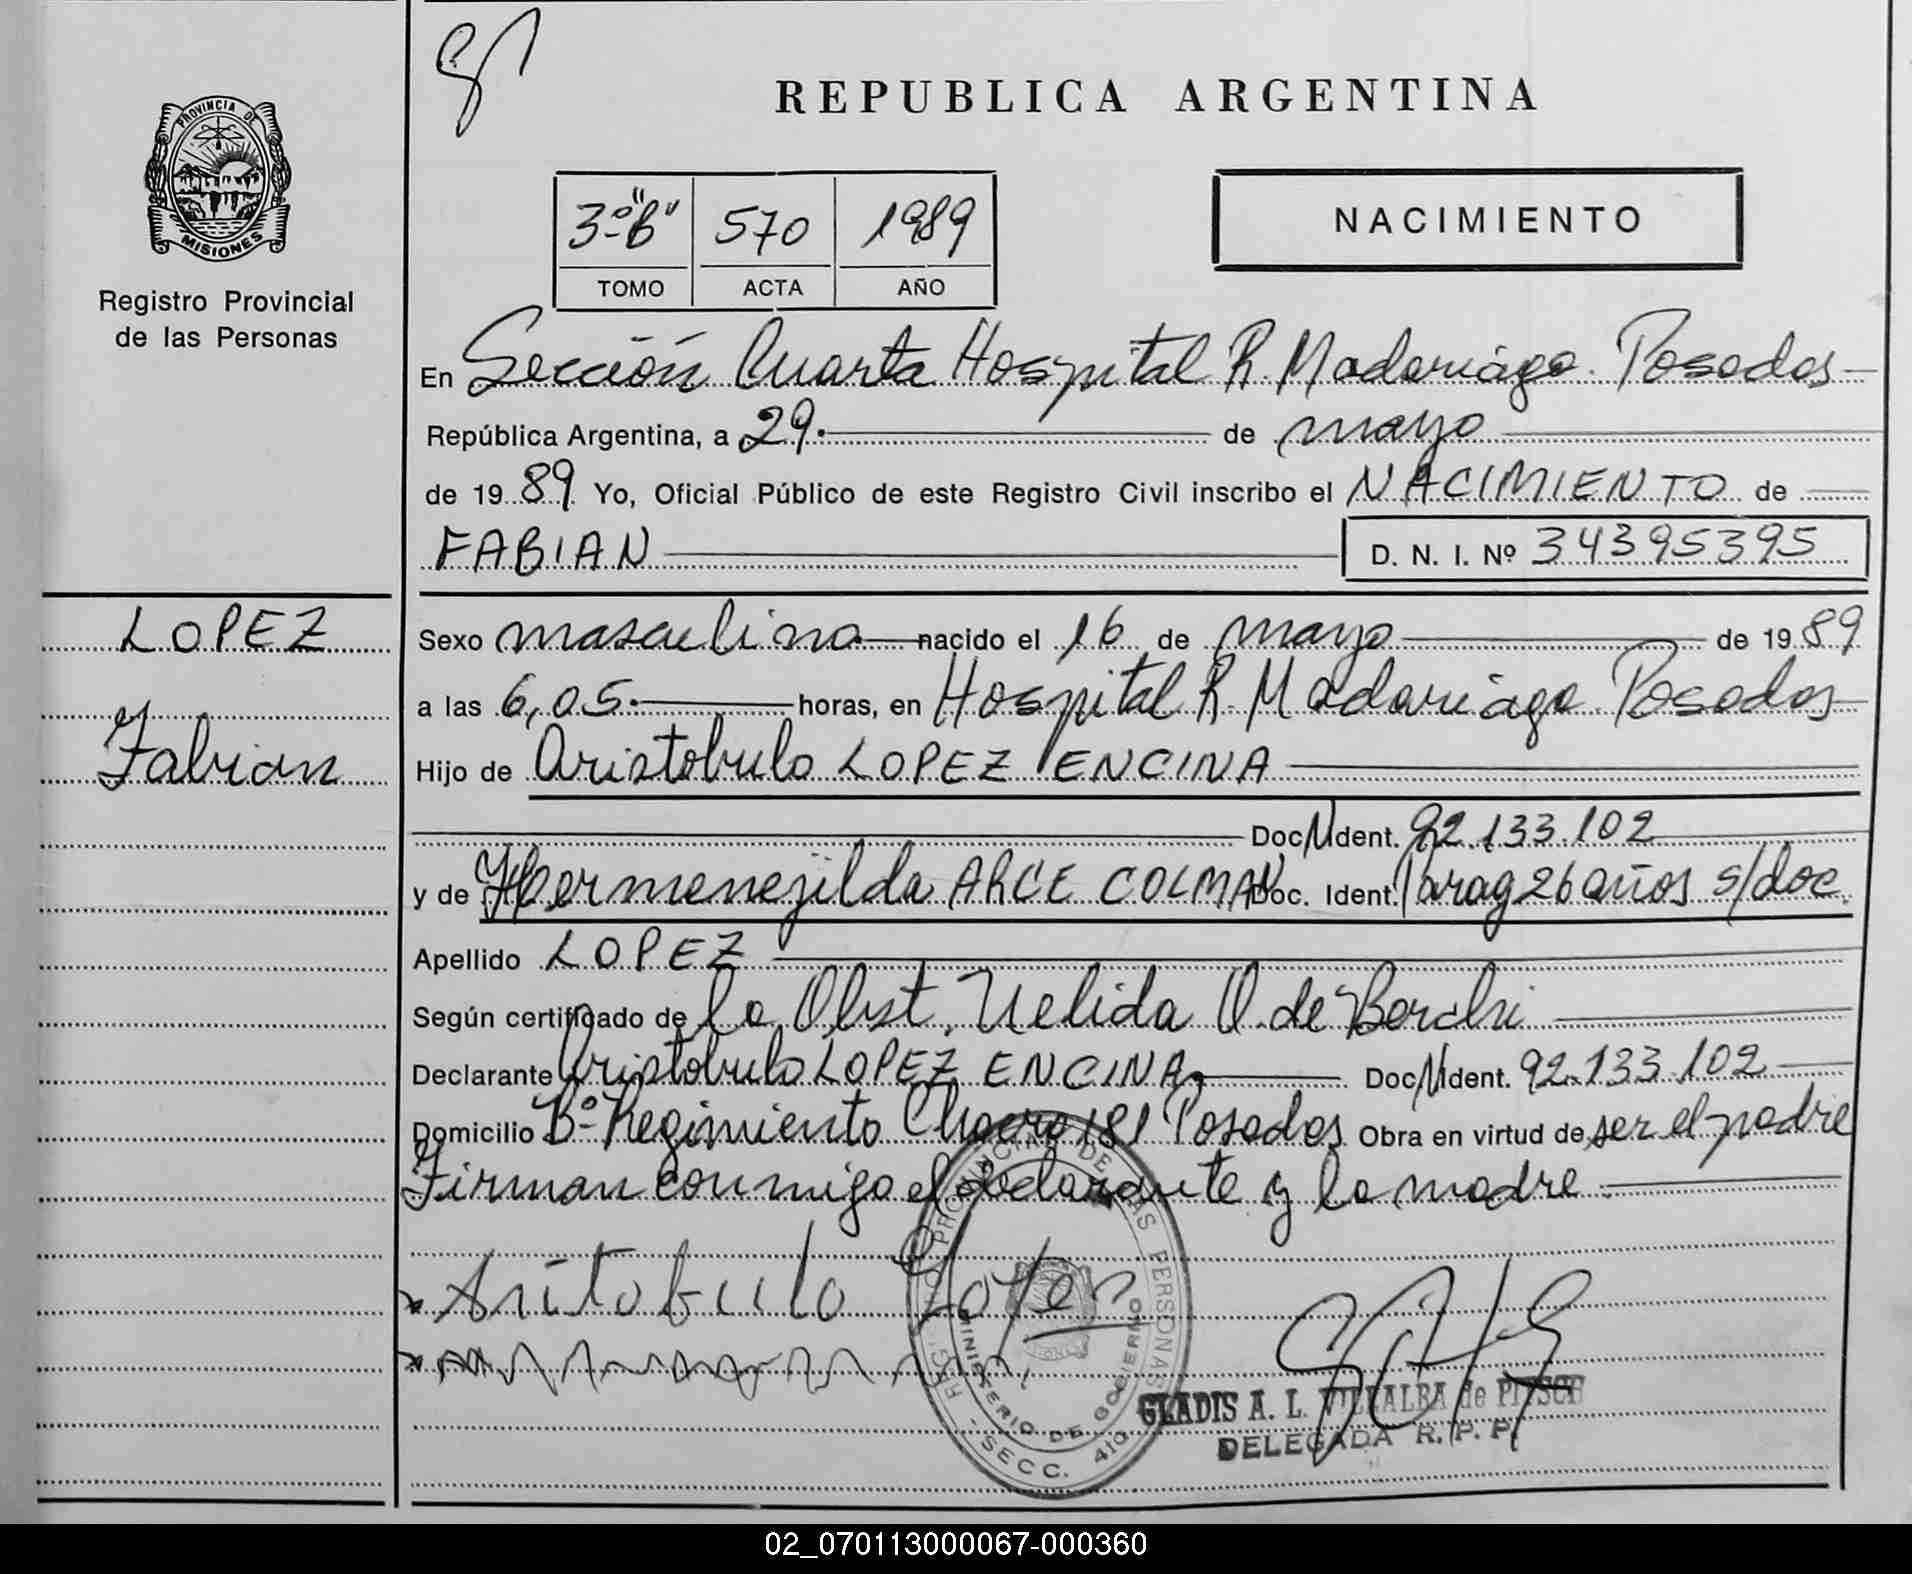 REPUBLICA ARGENTINA
PROVINCIA DE
MISIONES
Registro Provincial
de las Personas
3º "B" 570 1989
TOMO ACTA AÑO
NACIMIENTO
En Sección Cuarta Hospital R. Madariaga. Posadas
República Argentina, a 29. de mayo
de 1989 Yo, Oficial Público de este Registro Civil inscribo el NACIMIENTO de
FABIAN D. N. I. Nº 34395395
LOPEZ
Fabian
Sexo masculino nacido el 16 de mayo de 1989
a las 6,05. horas, en Hospital R. Madariaga. Posadas
Hijo de Aristobulo LOPEZ ENCINA
Doc N Ident. 92.133.102
y de Hermenejilda ARCE COLMAN Doc. Ident. Parag 26 años s/doc.
Apellido LOPEZ
Según certificado de la Obst. Nelida O. de Borchi
Declarante Aristobulo LOPEZ ENCINA Doc N Ident. 92.133.102
Domicilio Bº Regimiento Chacra 181 Posadas Obra en virtud de ser el padre
Firman conmigo el declarante y la madre
Aritobulo Lopez
REGISTRO PROVINCIAL DE LAS PERSONAS
MINISTERIO DE GOBIERNO
- SECC. 410
GLADIS A. L. VILLALBA de PITSCH
DELEGADA R. P. P.
02_070113000067-000360